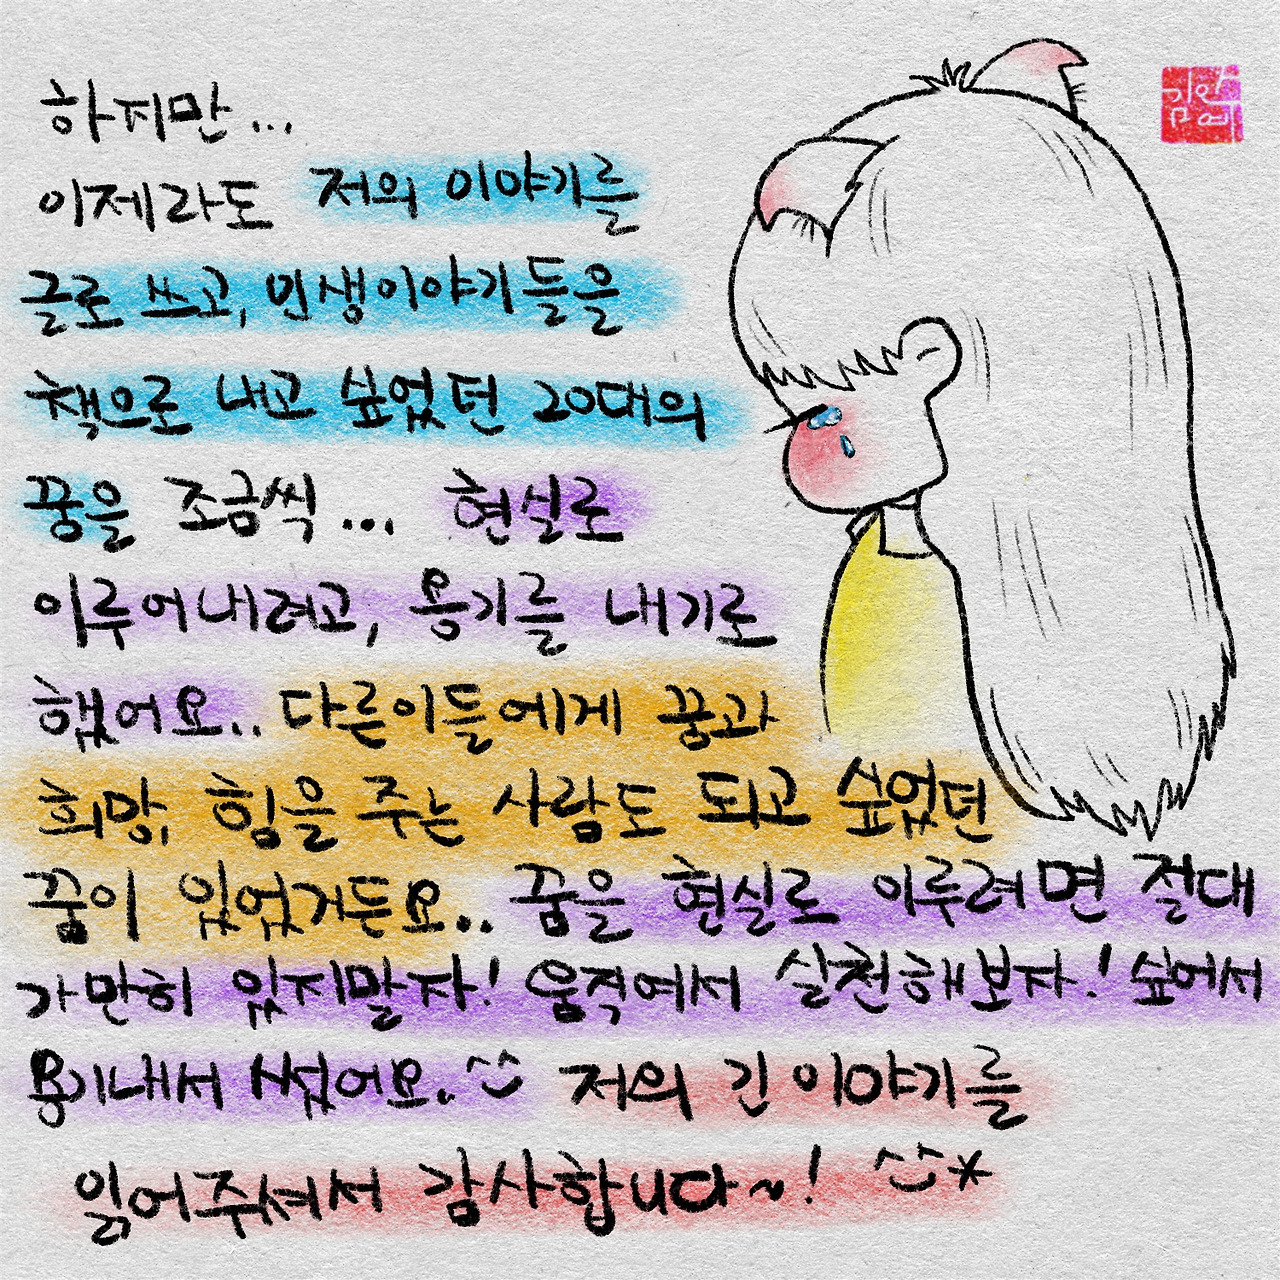 하지만...
이제라도 저의 이야기를
글로 쓰고, 인생이야기들을
책으로 내고 싶었던 20대의
꿈을 조금씩... 현실로
이루어내려고, 용기를 내기로
했어요.. 다른이들에게 꿈과
희망, 힘을 주는 사람도 되고 싶었던
꿈이 있었거든요.. 꿈을 현실로 이루려면 절대
가만히 있지말자! 움직여서 실천해보자! 싶어서
용기내서 써어요. ^^
저의 긴 이야기를
읽어주셔서 감사합니다~! ^^*